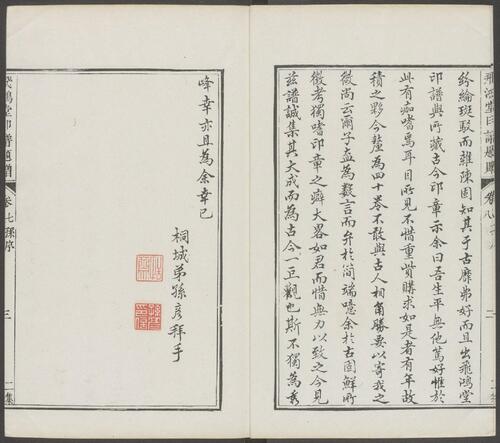 飛鴻堂印譜題贈
卷八
二集
紛綸斑駁而雜陳固知其于古靡弗好而且出飛鴻堂
印譜與所藏古今印章示余曰吾生平無他篤好惟於
此有痂嗜焉耳目所見不惜重貲購求如是者有年故
積之夥今釐為四十卷不敢與古人相角勝要以寄我之
微尚云爾子盍為數言而弁於簡端噫余於古固鮮所
徵考獨嗜印章之癖大畧如君而惜無力以致之今見
茲譜誠集其大成而為古今一豆觀也斯不獨為秀
峰幸亦且為余幸已
桐城弟孫彥拜手
飛鴻堂印譜題贈
卷七孫序
三
二集